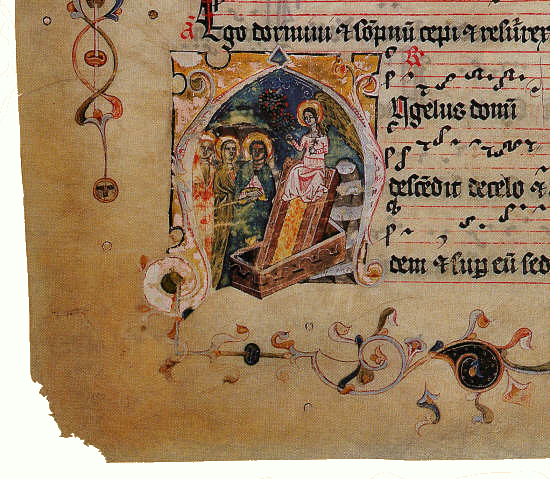 a Ego dormiui ⁊ sōpnū cepi ⁊ resur̄rex
R̷
Ngelus domī
descēdit decelo ⁊
dem ⁊ sup eū sed